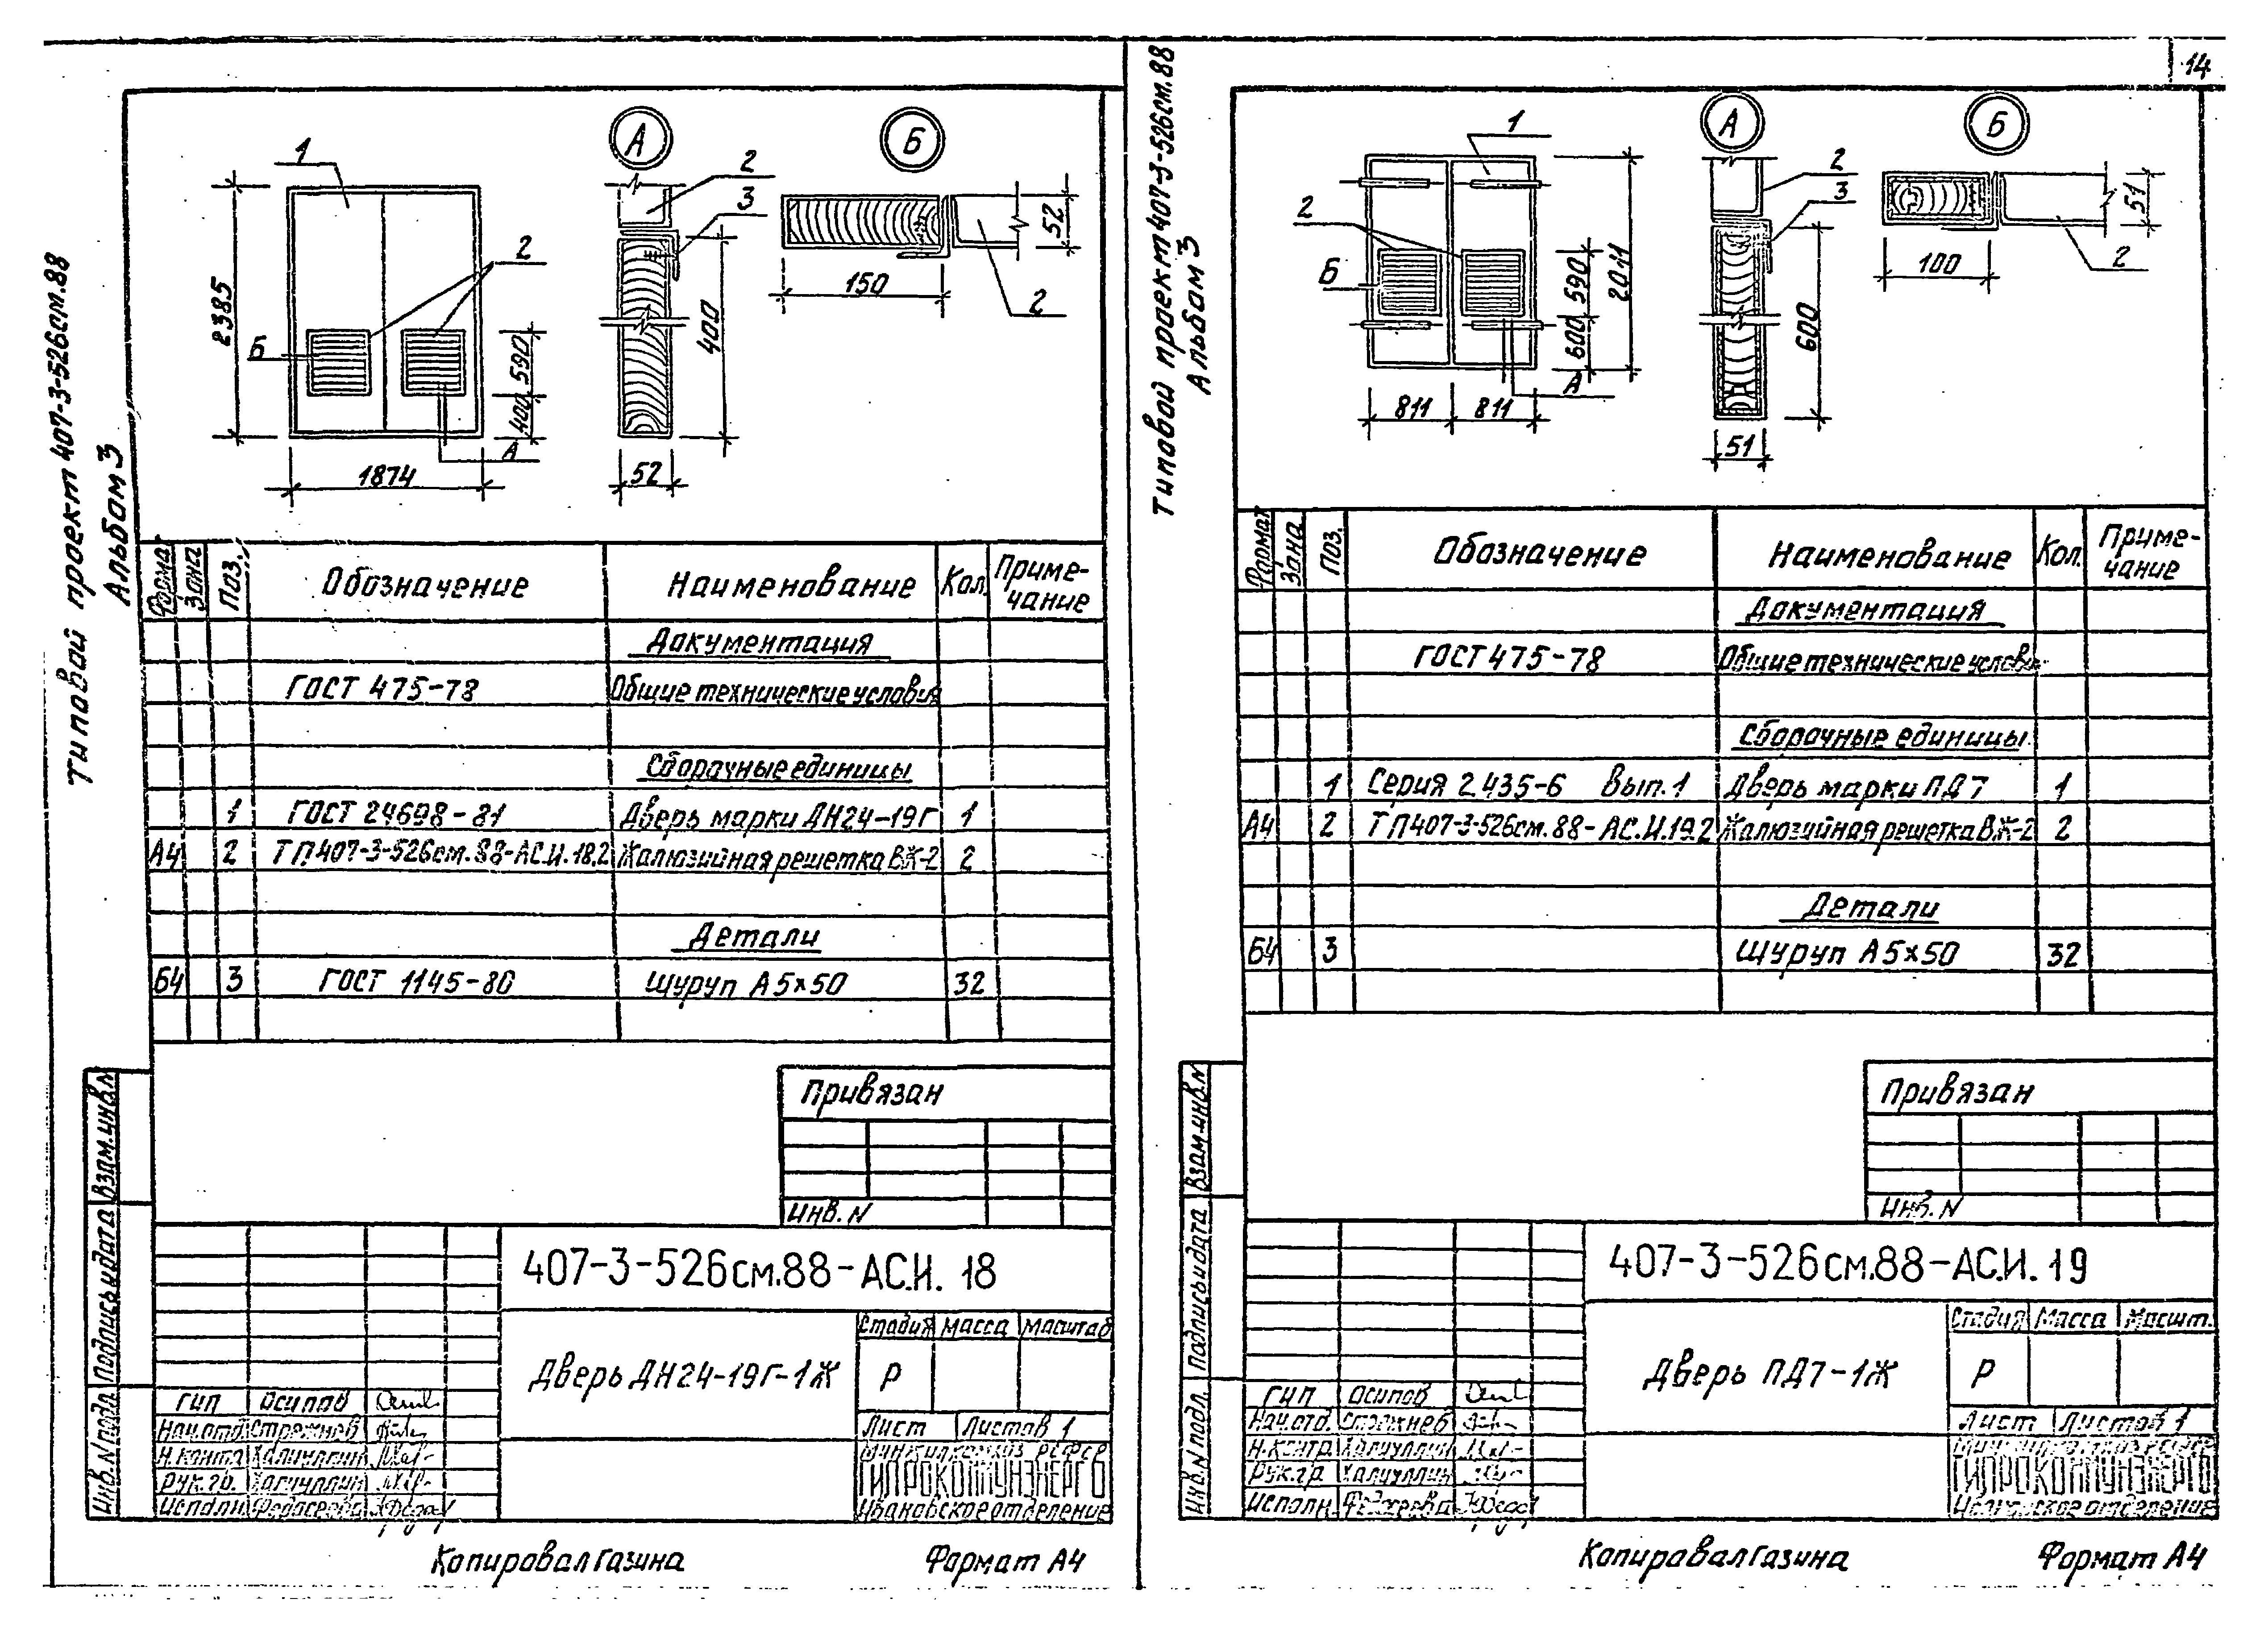 14
Типовой проект 407-3-526см.88
Альбом 3
А
Б
1
2
3
2
2385
Б
2
590
400
А
1874
400
52
52
150
2
Формат Зона Поз. Обозначение Наименование Кол. Приме-
чание
Документация
ГОСТ 475-78 Общие технические условия
Сборочные единицы
1 ГОСТ 24698-81 Дверь марки ДН24-19Г 1
А4 2 ТП407-3-526см.88-АС.И.18.2 Жалюзийная решетка ВЖ-2 2
Детали
Б4 3 ГОСТ 1145-80 Шуруп А5×50 32
Привязан
Инв. N
Взам.инв.N
Подпись и дата
Инв.N подл.
407-3-526см.88-АС.И. 18
Дверь ДН24-19Г-1Ж
Стадия Масса Масштаб
Р
Лист Листов 1
ГИП Осипов
Нач.отд. Стрежнев
Н.контр. Халиуллин
Рук.гр. Халиуллин
Исполн. Федосеева
Минжилкомхоз РСФСР
ГИПРОКОММУНЭНЕРГО
Ивановское отделение
Копировал Газина Формат А4
Типовой проект 407-3-526см.88
Альбом 3
А
Б
1
2
3
2
Б
590
600
2011
А
811 811
600
51
51
100
2
Формат Зона Поз. Обозначение Наименование Кол. Приме-
чание
Документация
ГОСТ 475-78 Общие технические услови
Сборочные единицы
1 Серия 2.435-6 Вып.1 Дверь марки ПД7 1
А4 2 ТП407-3-526см.88-АС.И.19.2 Жалюзийная решетка ВЖ-2 2
Детали
Б4 3 Шуруп А5×50 32
Привязан
Инв. N
Взам.инв.N
Подпись и дата
Инв.N подл.
407-3-526см.88-АС.И. 19
Дверь ПД7-1Ж
Стадия Масса Масшт.
Р
Лист Листов 1
ГИП Осипов
Нач.отд. Стрежнев
Н.контр. Халиуллин
Рук.гр. Халиуллин
Исполн. Федосеева
Минжилкомхоз РСФСР
ГИПРОКОММУНЭНЕРГО
Ивановское отделение
Копировал Газина Формат А4